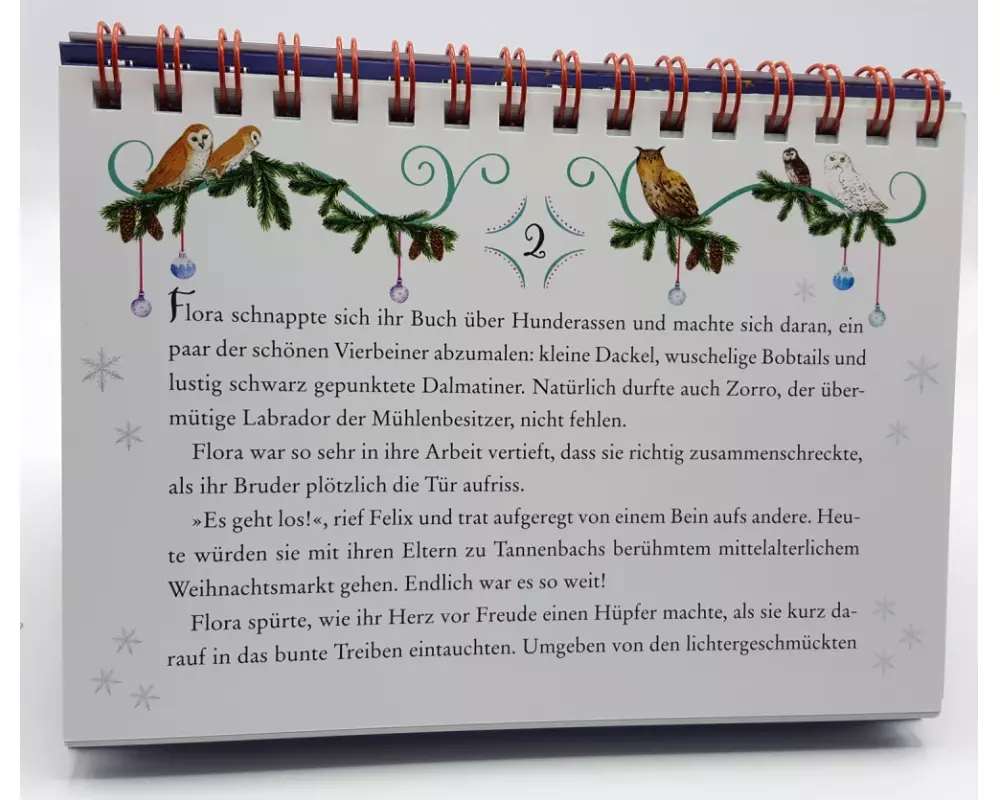 2
Flora schnappte sich ihr Buch über Hunderassen und machte sich daran, ein
paar der schönen Vierbeiner abzumalen: kleine Dackel, wuschelige Bobtails und
lustig schwarz gepunktete Dalmatiner. Natürlich durfte auch Zorro, der über-
mütige Labrador der Mühlenbesitzer, nicht fehlen.
Flora war so sehr in ihre Arbeit vertieft, dass sie richtig zusammenschreckte,
als ihr Bruder plötzlich die Tür aufriss.
»Es geht los!«, rief Felix und trat aufgeregt von einem Bein aufs andere. Heu-
te würden sie mit ihren Eltern zu Tannenbachs berühmtem mittelalterlichem
Weihnachtsmarkt gehen. Endlich war es so weit!
Flora spürte, wie ihr Herz vor Freude einen Hüpfer machte, als sie kurz da-
rauf in das bunte Treiben eintauchten. Umgeben von den lichtergeschmückten